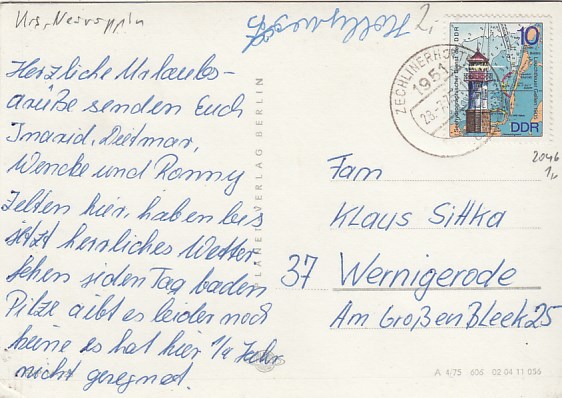 Krs. Neuruppin
2,-
Herzliche Urlaubs-
grüße senden Euch
Ingrid, Dietmar,
Wencke und Ronny
Zelten hier, haben bis
jetzt herrliches Wetter
Gehen jeden Tag baden
Pilze gibt es leider noch
keine es hat hier 1/4 Jahr
nicht geregnet.
PLANET-VERLAG BERLIN
ZECHLINERHÜTTE
1951
10
DDR
2046
1,-
Fam
Klaus Sittka
37 Wernigerode
Am Großen Bleek 25
A 4/75 606 02 04 11 056